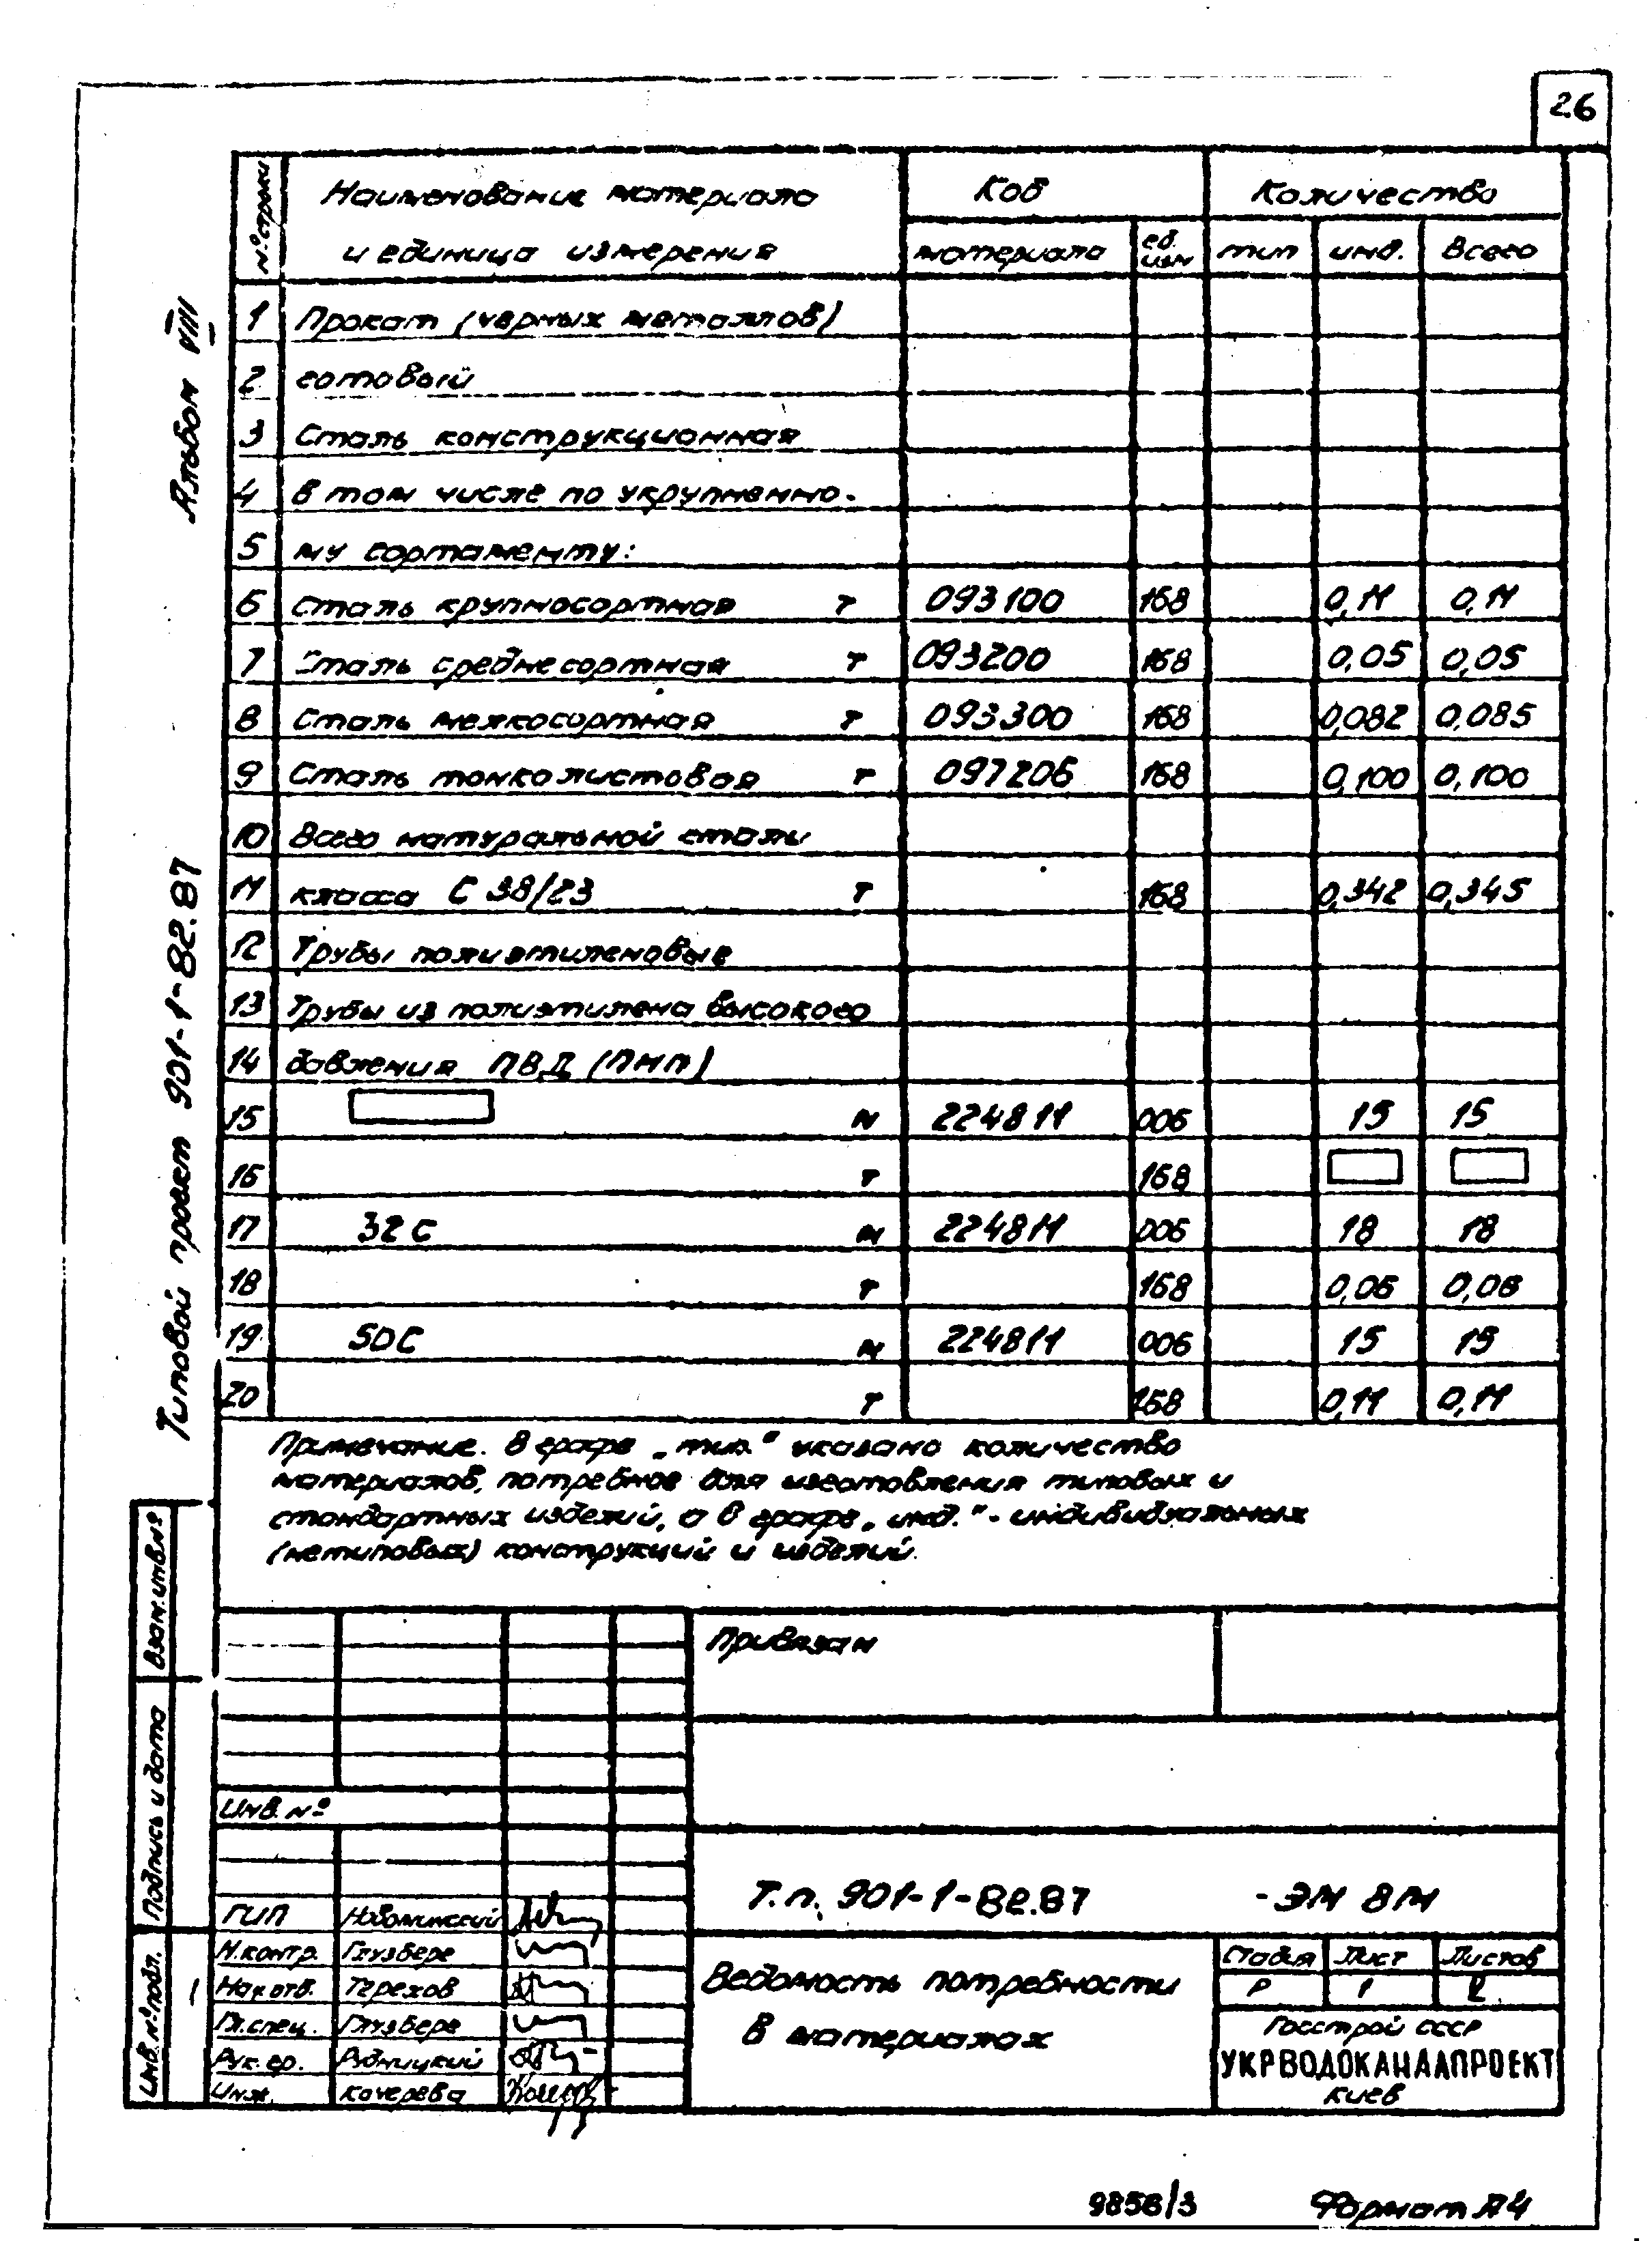 26
№ строки
Наименование материала
и единица измерения
Код
Количество
материала
ед. изм
тип
инд.
Всего
1 Прокат (черных металлов)
2 готовый
3 Сталь конструкционная
4 в том числе по укрупненно-
5 му сортаменту:
6 Сталь крупносортная т 093100 168 0,11 0,11
7 Сталь среднесортная т 093200 168 0,05 0,05
8 Сталь мелкосортная т 093300 168 0,082 0,085
9 Сталь тонколистовая т 097206 168 0,100 0,100
10 Всего натуральной стали
11 класса С 38/23 т 168 0,342 0,345
12 Трубы полиэтиленовые
13 Трубы из полиэтилена высокого
14 давления ПВД (ПНП)
15 м 224811 006 15 15
16 т 168
17 32С м 224811 006 18 18
18 т 168 0,06 0,06
19 50С м 224811 006 15 15
20 т 168 0,11 0,11
Примечание. В графе „тип." указано количество
материалов, потребное для изготовления типовых и
стандартных изделий, а в графе „инд." - индивидуальных
(нетиповых) конструкций и изделий.
Альбом VIII
Типовой проект 901-1-82.87
Взам. инв. №
Подпись и дата
Инв. № подл.
Привязан
Инв. №
Т.п. 901-1-82.87 - ЭМ ВМ
ГИП
Н.контр. Глузберг
Нач. отв. Терехов
Гл. спец. Глузберг
Рук. гр. Рудницкий
Инж. Кочерева
Ведомость потребности
в материалах
Стадия Лист Листов
Р 1 2
Госстрой СССР
УКРВОДОКАНАЛПРОЕКТ
Киев
9856/3
Формат А4